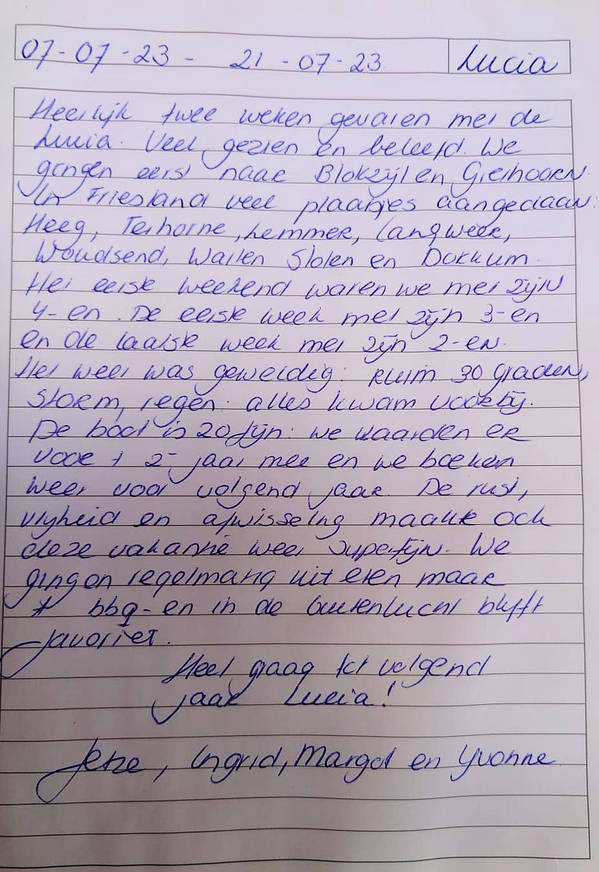 07-07-23 - 21-07-23 Lucia
Heerlijk twee weken gevaren met de
Lucia. Veel gezien en beleefd. We
gingen eerst naar Blokzijl en Giethoorn.
In Friesland veel plaatjes aangedaan:
Heeg, Terhorne, Lemmer, Langweer,
Woudsend, Warten Sloten en Dokkum.
Het eerste weekend waren we met zijn
4-en. De eerste week met zijn 3-en
en de laatste week met zijn 2-en.
Het weer was geweldig: ruim 30 graden,
storm, regen: alles kwam voorbij.
De boot is zo fijn: we vaarden er
voor 2e jaar mee en we boeken
weer voor volgend jaar. De rust,
vrijheid en afwisseling maakte ook
deze vakantie weer superfijn. We
gingen regelmatig uit eten maar
bbq-en in de buitenlucht blijft
favoriet.
Heel graag tot volgend
jaar Lucia!
Ingrid, Margot en Yvonne